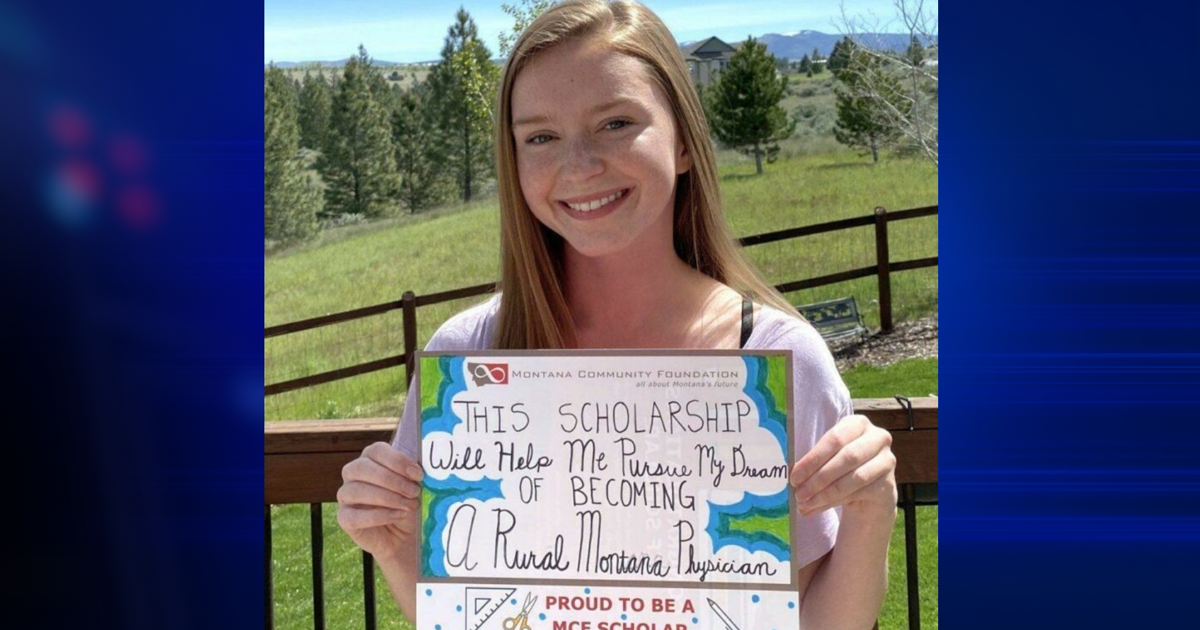 MONTANA COMMUNITY FOUNDATION
all about Montana's future
THIS SCHOLARSHIP
Will Help Me Pursue My Dream
OF BECOMING
A Rural Montana Physician
PROUD TO BE A
MCF SCHOLAR